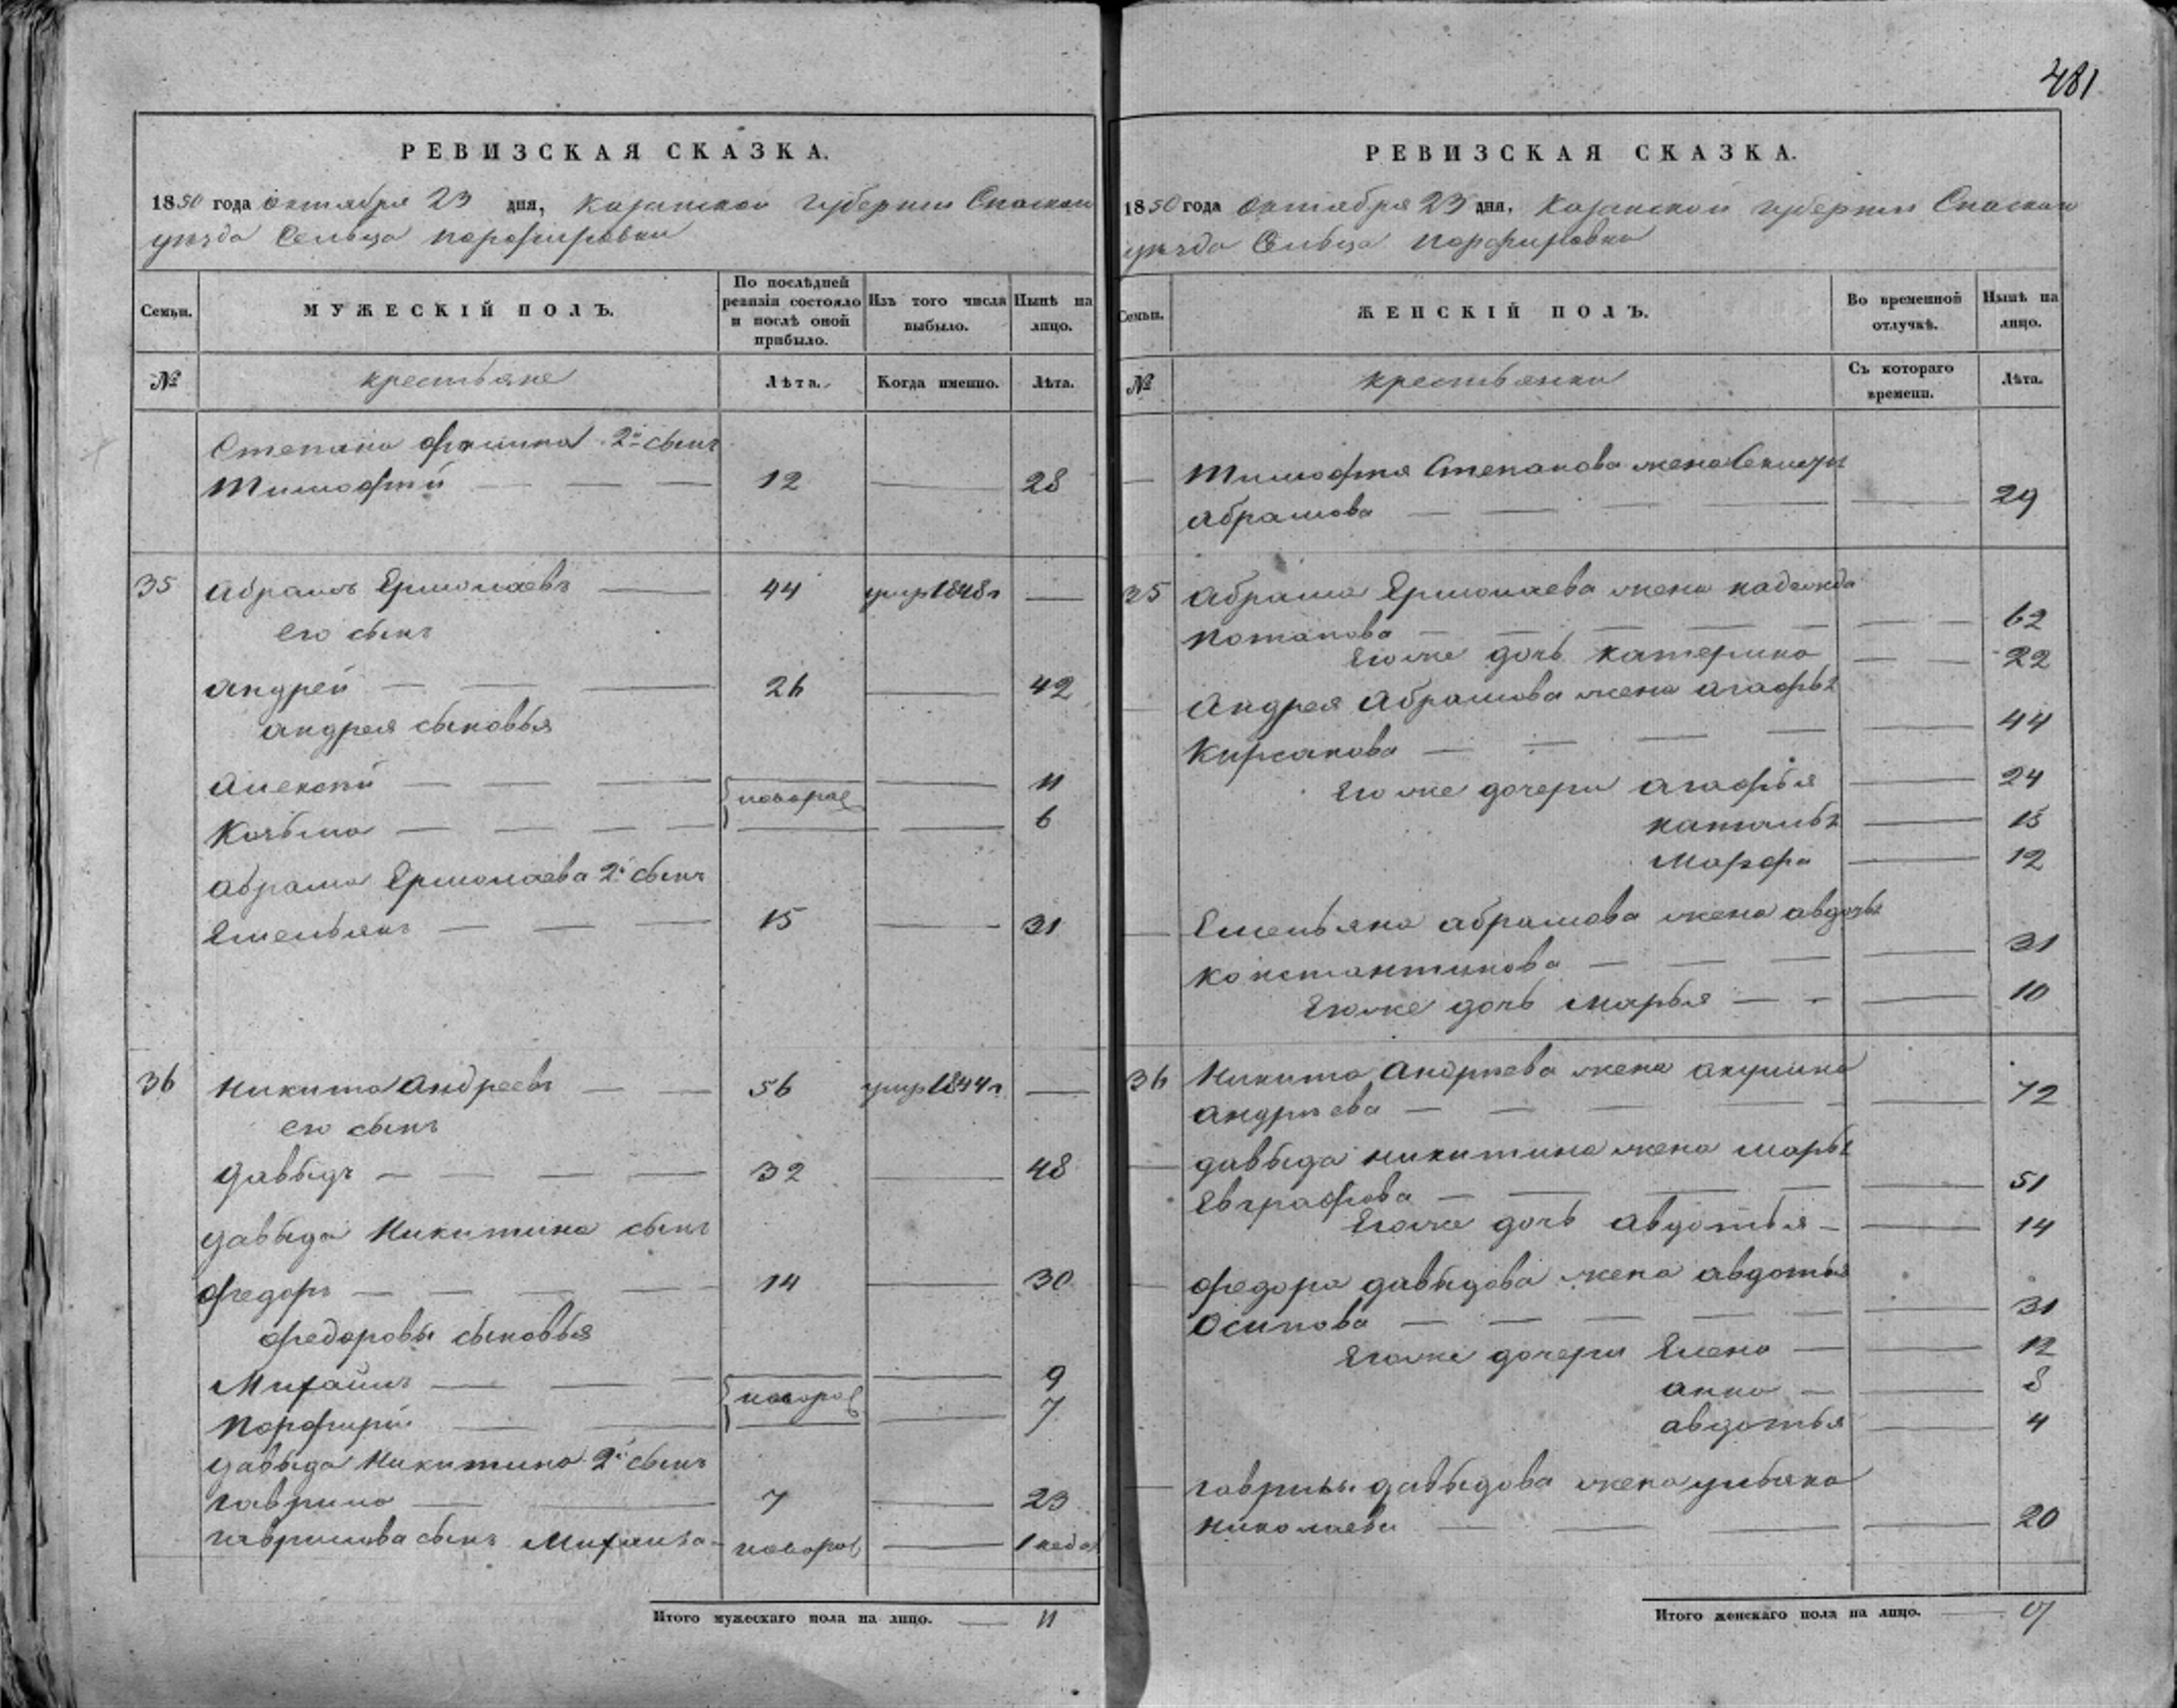 481
РЕВИЗСКАЯ СКАЗКА.
1850 года октября 23 дня, Казанской губернии Спаскаго
уѣзда Сельца Порфировки
Семьи. МУЖЕСКІЙ ПОЛЪ. По послѣдней ревизіи состояло и послѣ оной прибыло. Изъ того числа выбыло. Нынѣ на лицо.
№ крестьяне Лѣта. Когда именно. Лѣта.
Степана Фомина 2й сынъ
Тимофѣй — — — 12 — 28
35 Абрамъ Ермолаевъ — 44 умр 1848г —
его сынъ
Андрей — — — 26 — 42
Андрея сыновья
Алексѣй — — — новорож — 11
Козьма — — — — — 6
Абрама Ермолаева 2й сынъ
Емельянъ — — — 15 — 31
36 Никита Андреевъ — — 56 умр 1844г —
его сынъ
Давыдъ — — — — 32 — 48
Давыда Никитина сынъ
Федоръ — — — — 14 — 30
Федоровы сыновья
Михайлъ — — — новорож — 9
Порфирій — — — 7
Давыда Никитина 2й сынъ
Гаврила — — 7 — 23
Гаврилова сынъ Михаила - новорож — 1 неде
Итого мужескаго пола на лицо. — 11
РЕВИЗСКАЯ СКАЗКА.
1850 года октября 23 дня, Казанской губернии Спаскаго
уѣзда Сельца Порфировки
Семьи. ЖЕНСКІЙ ПОЛЪ. Во временной отлучкѣ. Нынѣ на лицо.
№ крестьянки Съ котораго времени. Лѣта.
— Тимофѣя Степанова жена
Абрамова — — — — — 29
35 Абрама Ермолаева жена Надежда
Потапова — — — — — — — 62
Его же дочь Катерина — — 22
— Андрея Абрамова жена Агафья
Кирсанова — — — — — 44
Его же дочери Агафья — 24
Наталья — 15
Марфа — 12
— Емельяна Абрамова жена Авдотья
Константинова — — — — 31
Его же дочь Марья — - — 10
36 Никита Андрѣева жена Акулина
Андрѣева — — — — — 72
— Давыда Никитина жена Марья
Евграфова — — — — — 51
Его же дочь Авдотья — — 14
— Федора Давыдова жена Авдотья
Осипова — — — — — 31
Его же дочери Елена — — 12
Анна — — 8
Авдотья — 4
— Гаврилы Давыдова жена Ульяна
Николаева — — — — 20
Итого женскаго пола на лицо. — 17